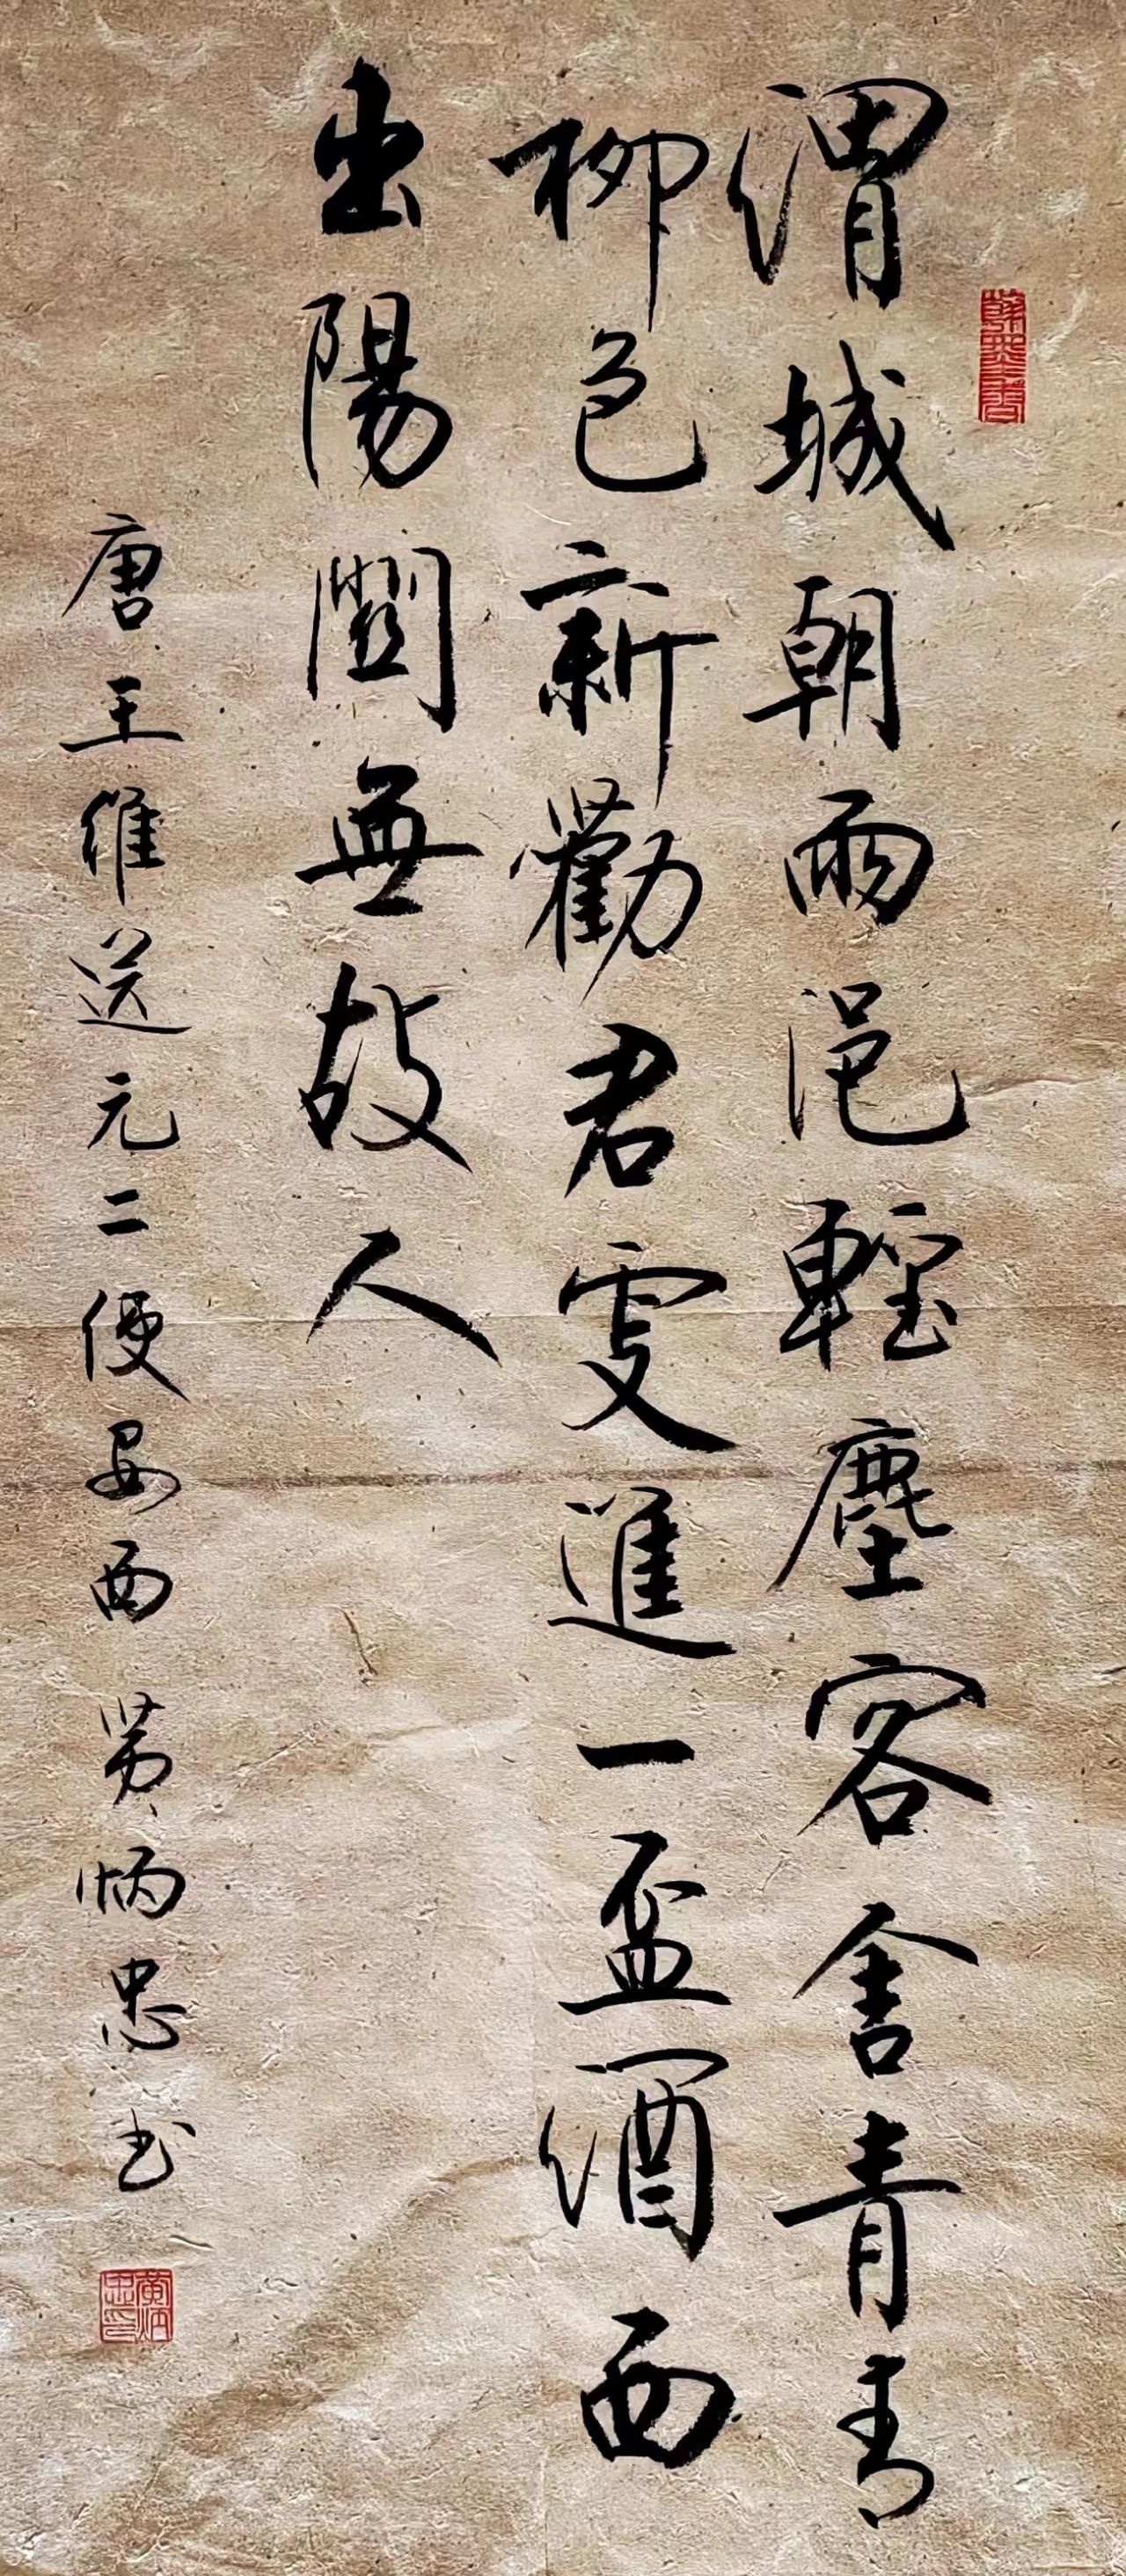 渭城朝雨浥輕塵客舍青青
柳色新勸君更進一盃酒西
出陽關無故人
唐王維送元二使安西 黄炳忠书
黄炳忠印